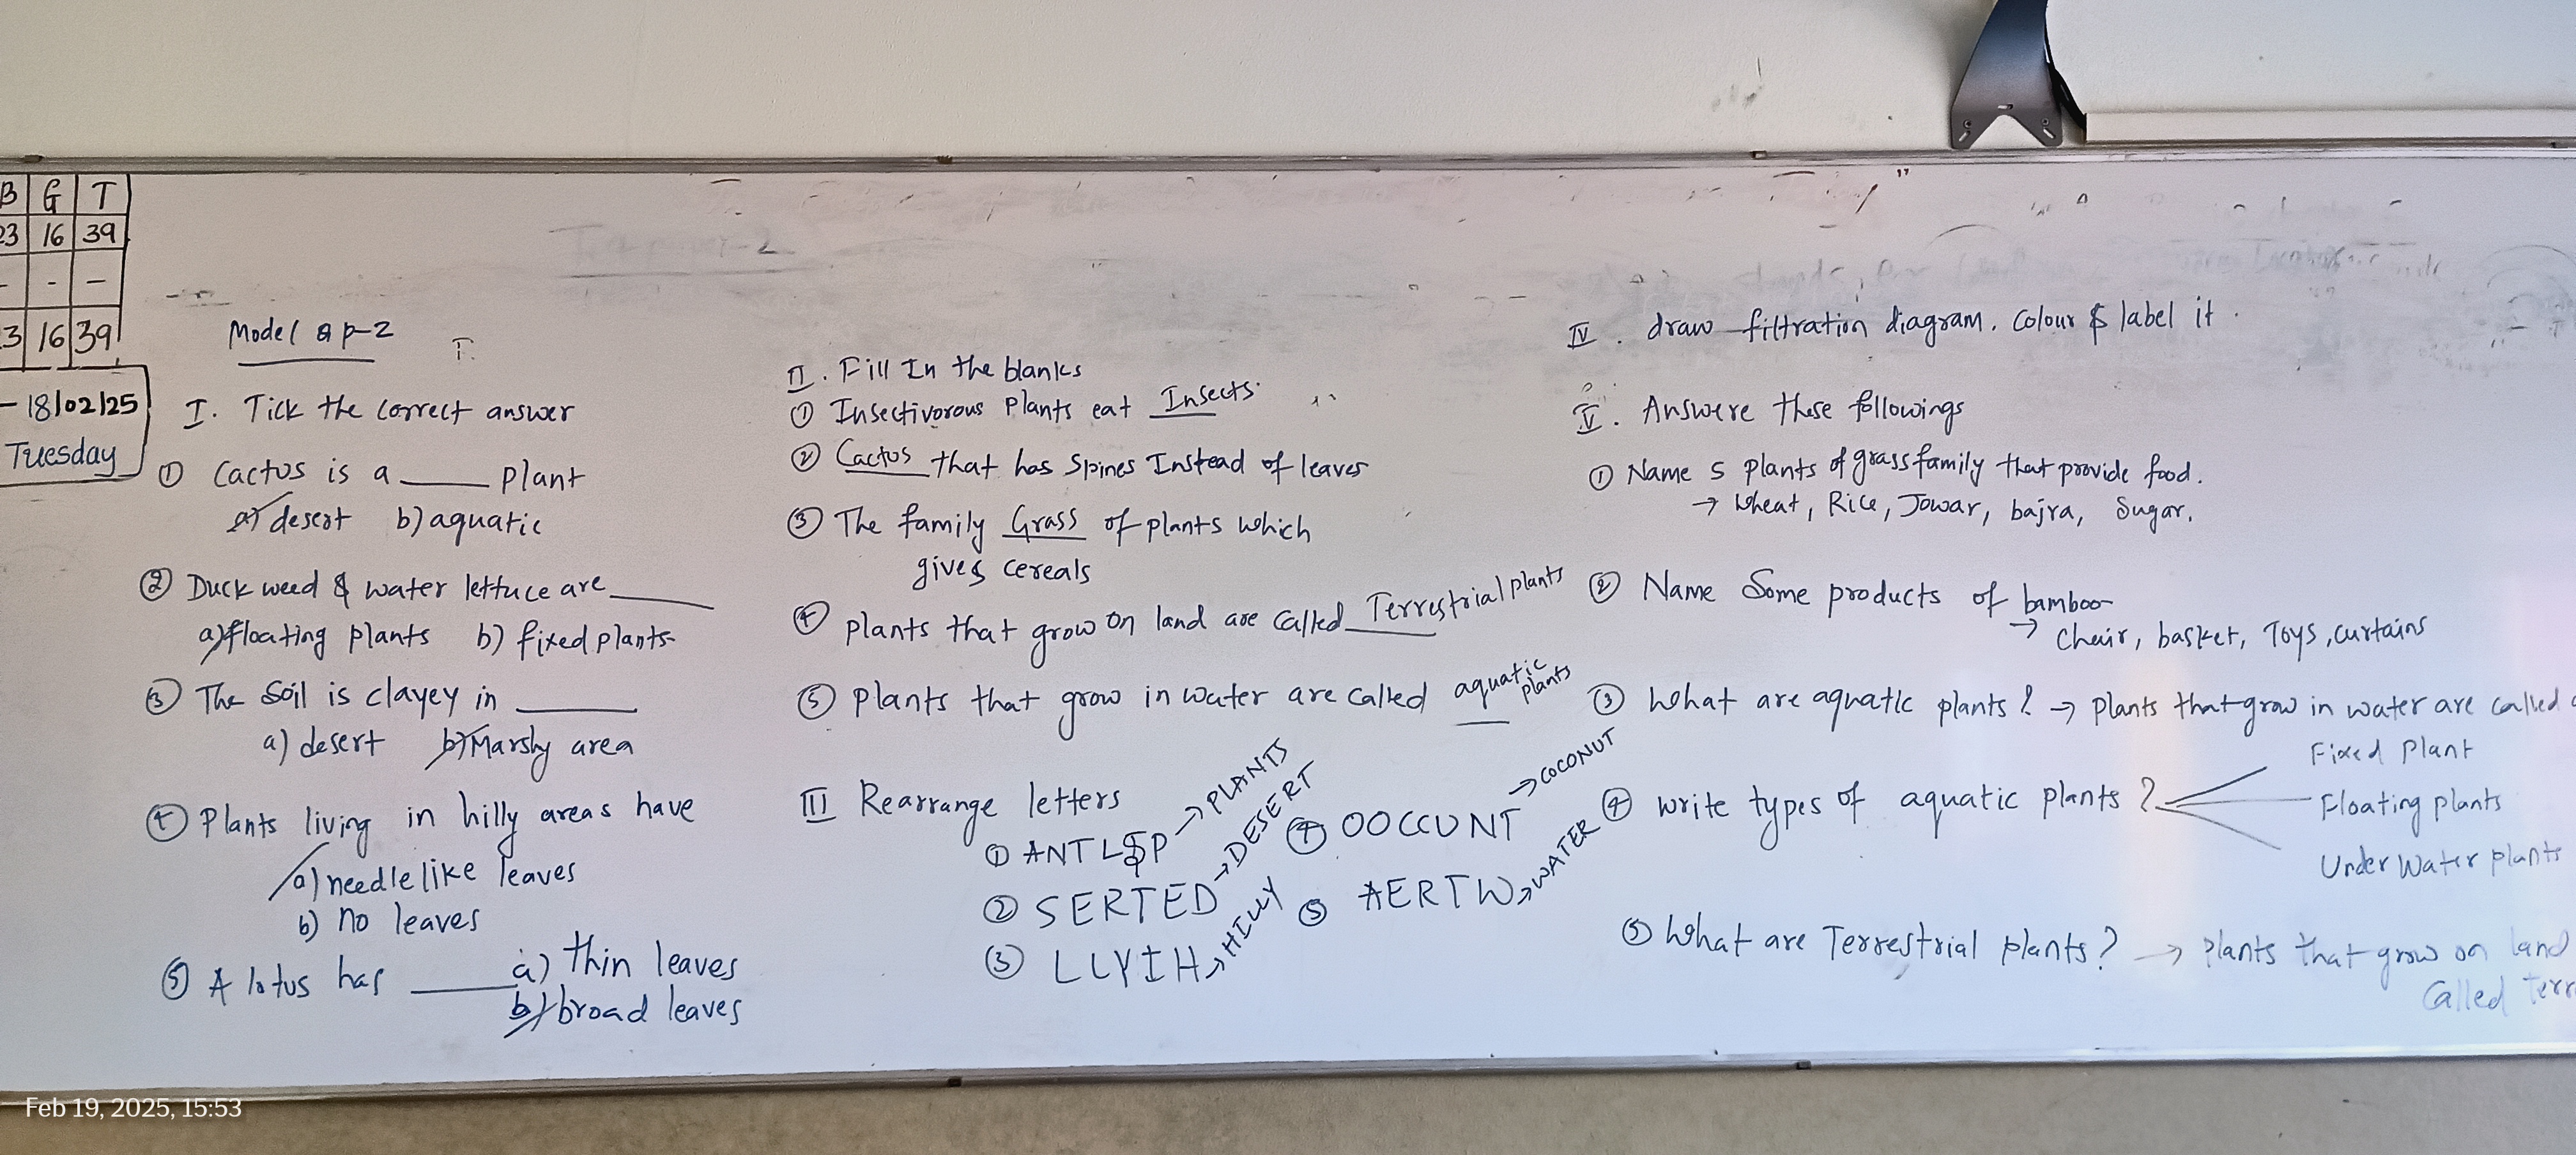 B G T
23 16 39
- - -
3 16 39
- 18/02/25
Tuesday
Model Q p-2
I. Tick the correct answer
① Cactus is a ____ plant
a) desert b) aquatic
② Duck weed & water lettuce are ____
a) floating plants b) fixed plants
③ The Soil is clayey in ____
a) desert b) Marshy area
④ Plants living in hilly areas have
a) needle like leaves
b) no leaves
⑤ A lotus has ____ a) thin leaves
b) broad leaves
II. Fill In the blanks
① Insectivorous Plants eat Insects.
② Cactus that has Spines Instead of leaves
③ The family Grass of plants which
gives cereals
④ plants that grow on land are called Terrestrial plants
⑤ plants that grow in water are called aquatic plants
III Rearrange letters
① ANTLSP → PLANTS
② SERTED → DESERT
③ LLYIH → HILLY
④ OOCCUNT → COCONUT
⑤ AERTW → WATER
IV. draw filtration diagram. Colour & label it.
V. Answere these followings
① Name 5 plants of grass family that provide food.
→ Wheat, Rice, Jowar, bajra, Sugar.
② Name Some products of bamboo
→ Chair, basket, Toys, curtains
③ What are aquatic plants? → plants that grow in water are called
④ write types of aquatic plants?
Fixed Plant
Floating plants
Under Water plants
⑤ What are Terrestrial plants? → plants that grow on land
Called terr
Feb 19, 2025, 15:53